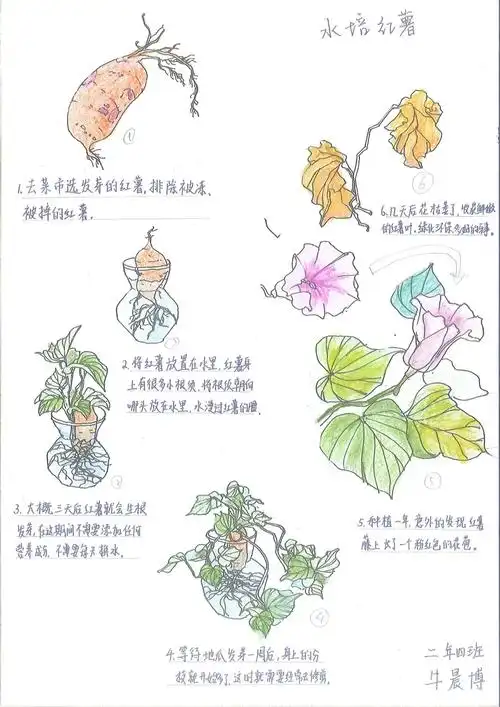 水培红薯
①
1.去菜市选发芽的红薯,排除被冻、
被摔的红薯。
2.将红薯放置在水里,红薯身
上有很多小根须,将根须朝向
哪头放在水里,水漫过红薯的腰
3.大概三天后红薯就会生根
发芽,在这期间不需要添加任何
营养成分,不需要每天换水。
④
4.等待地瓜发芽一周后,身上的分
枝就开始
这时就需要经常去修剪。
⑤
5.种植一年,意外的发现红薯
藤上
了一个粉红色的花苞。
⑥
6.几天后花枯萎了,
的红薯叶,绿化环保
二年四班
牛晨博